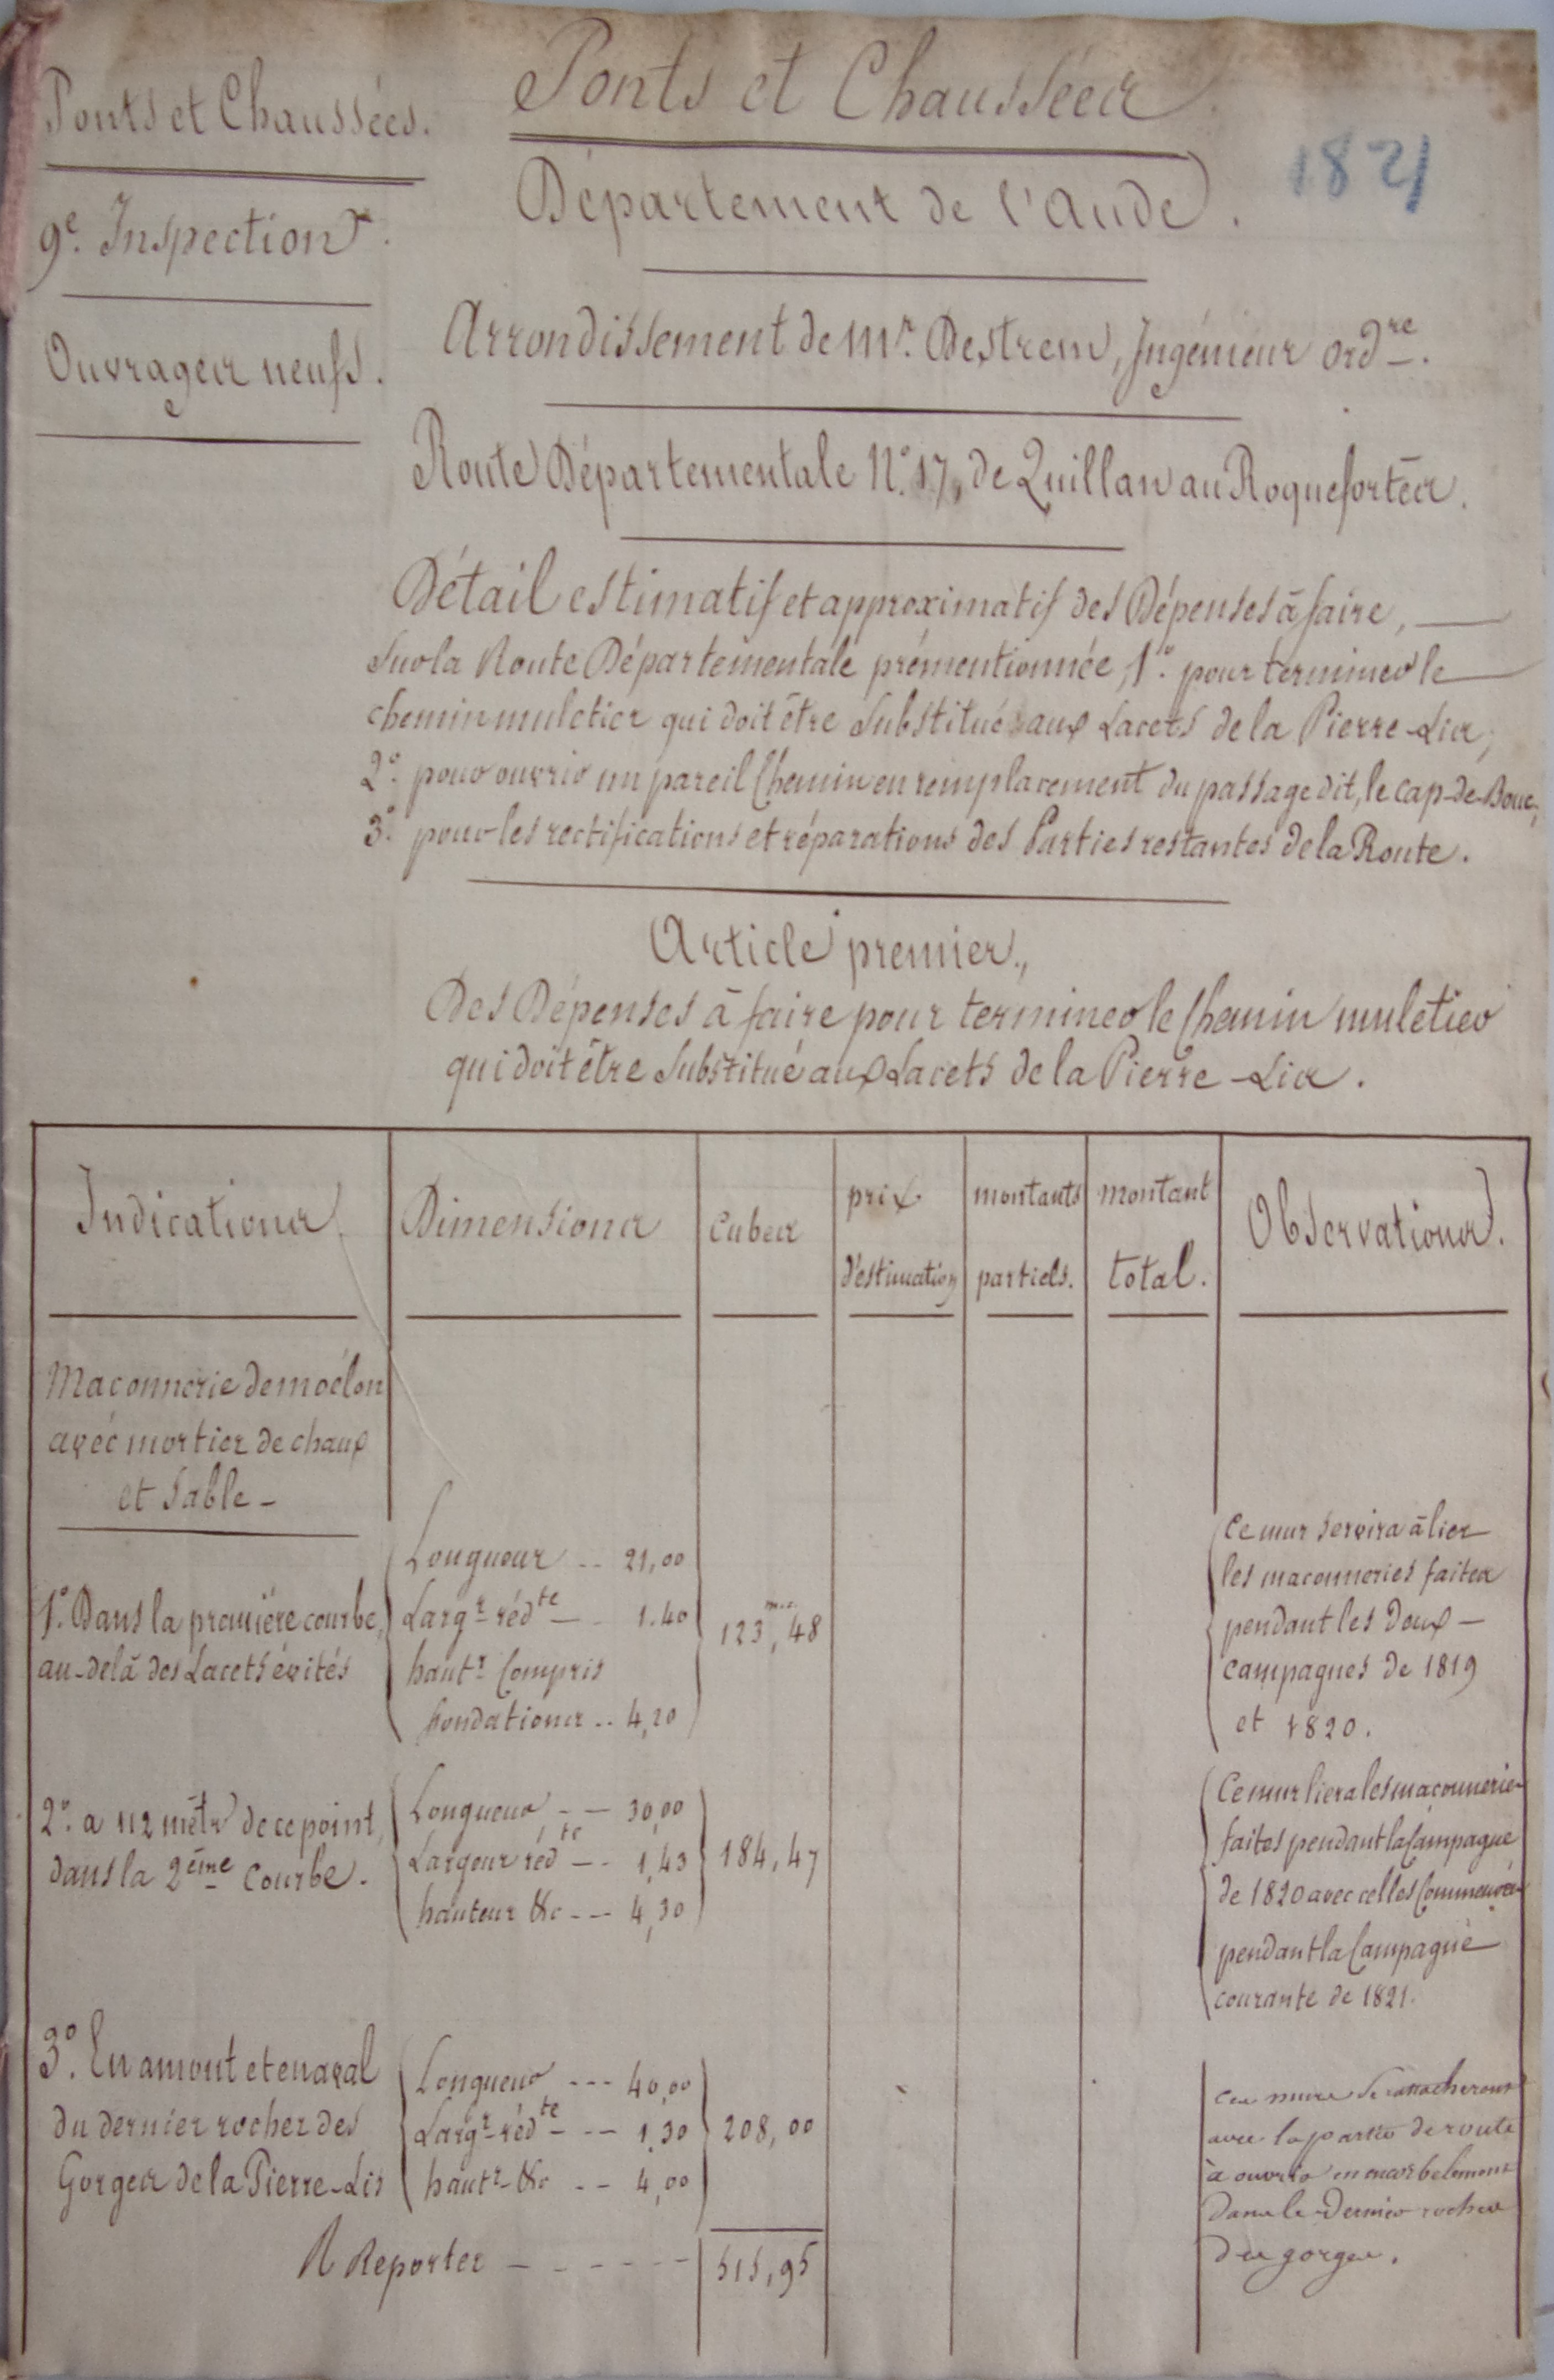 Ponts et Chaussées.
9e. Inspection.
Ouvrages neufs.
Ponts et Chaussées
1821
Département de l'Aude.
Arrondissement de Mr. Destrem, Ingénieur ordre.
Route Départementale N°. 17, de Quillan au Roquefortès.
Détail estimatif et approximatif des Dépenses à faire,
sur la Route Départementale prémentionnée, 1°. pour terminer le
chemin muletier qui doit être substitué aux Lacets de la Pierre-Lis,
2°. pour ouvrir un pareil Chemin en remplacement du passage dit, le Cap-de-Bouc,
3°. pour les rectifications et réparations des Parties restantes de la Route.
Article premier.,
Des Dépenses à faire pour terminer le Chemin muletier
qui doit être substitué aux Lacets de la Pierre-Lis.
Indications Dimensions Cubes prix d'estimation montants partiels. montant total. Observations.
Maçonnerie de moëlon
avec mortier de chaux
et sable -
1°. Dans la première courbe,
au-delà des Lacets évités
Longueur .. 21,00
Largr. rédte - . 1.40
hautr. Compris
fondations .. 4,20
123,48
Ce mur servira à lier
les maçonneries faites
pendant les deux -
campagnes de 1819
et 1820.
2°. a 112 mètr de ce point,
dans la 2ème Courbe.
Longueur - - 30,00
Largeur rédte - . 1,43
hauteur &c - - 4,30
184,47
Ce mur liera les maçonneries
faites pendant la Campagne
de 1820 avec celles Commencées
pendant la Campagne
courante de 1821.
3°. En amont et en aval
du dernier rocher des
Gorges de la Pierre-Lis
Longueur --- 40,00
Largr. rédte - - - 1,30
hautr. &c - - 4,00
208,00
Ces murs se rattacheront
avec la partie de route
à ouvrir en encorbelement
dans le dernier rocher
des gorges.
A Reporter - - - - - - 515,95